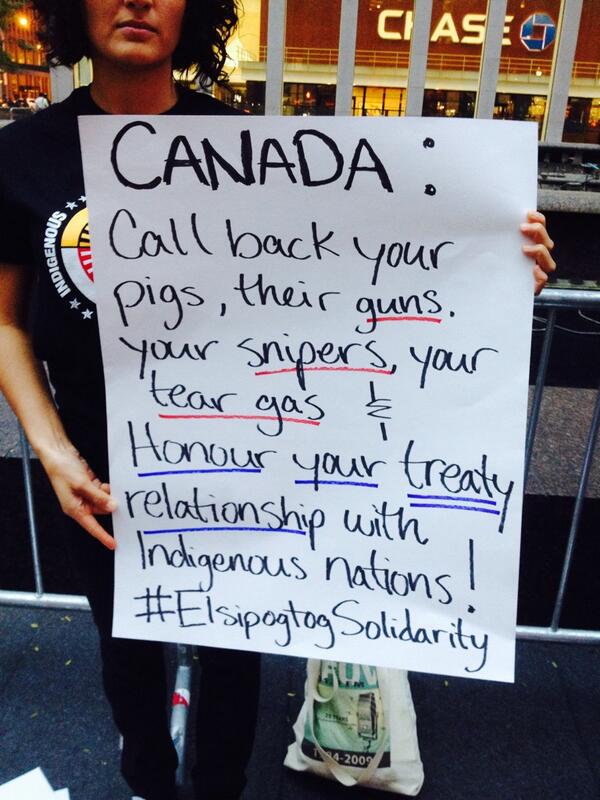 CHASE
CANADA:
Call back your
pigs, their guns.
your snipers, your
tear gas &
Honour your treaty
relationship with
Indigenous nations!
#ElsipogtogSolidarity
INDIGENOUS